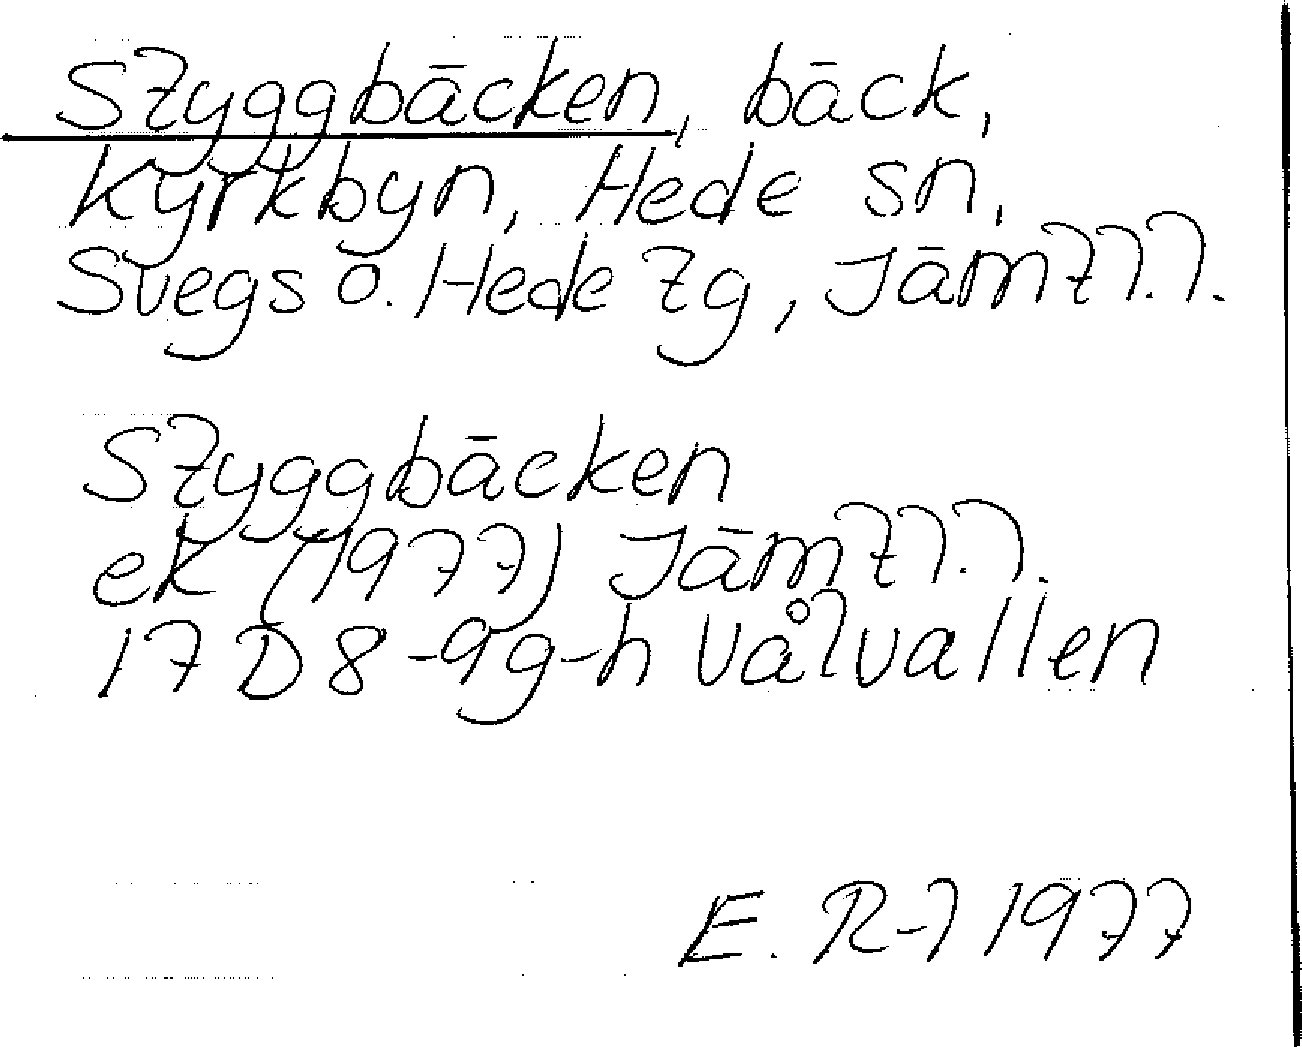 Styggbäcken, bäck,
Kyrkbyn, Hede sn,
Svegs o. Hede tg, Jämtl.l.
Styggbäcken
ek (1977) Jämtl.l.
17 D 8-9g-h Vålvallen
E. R-l 1977